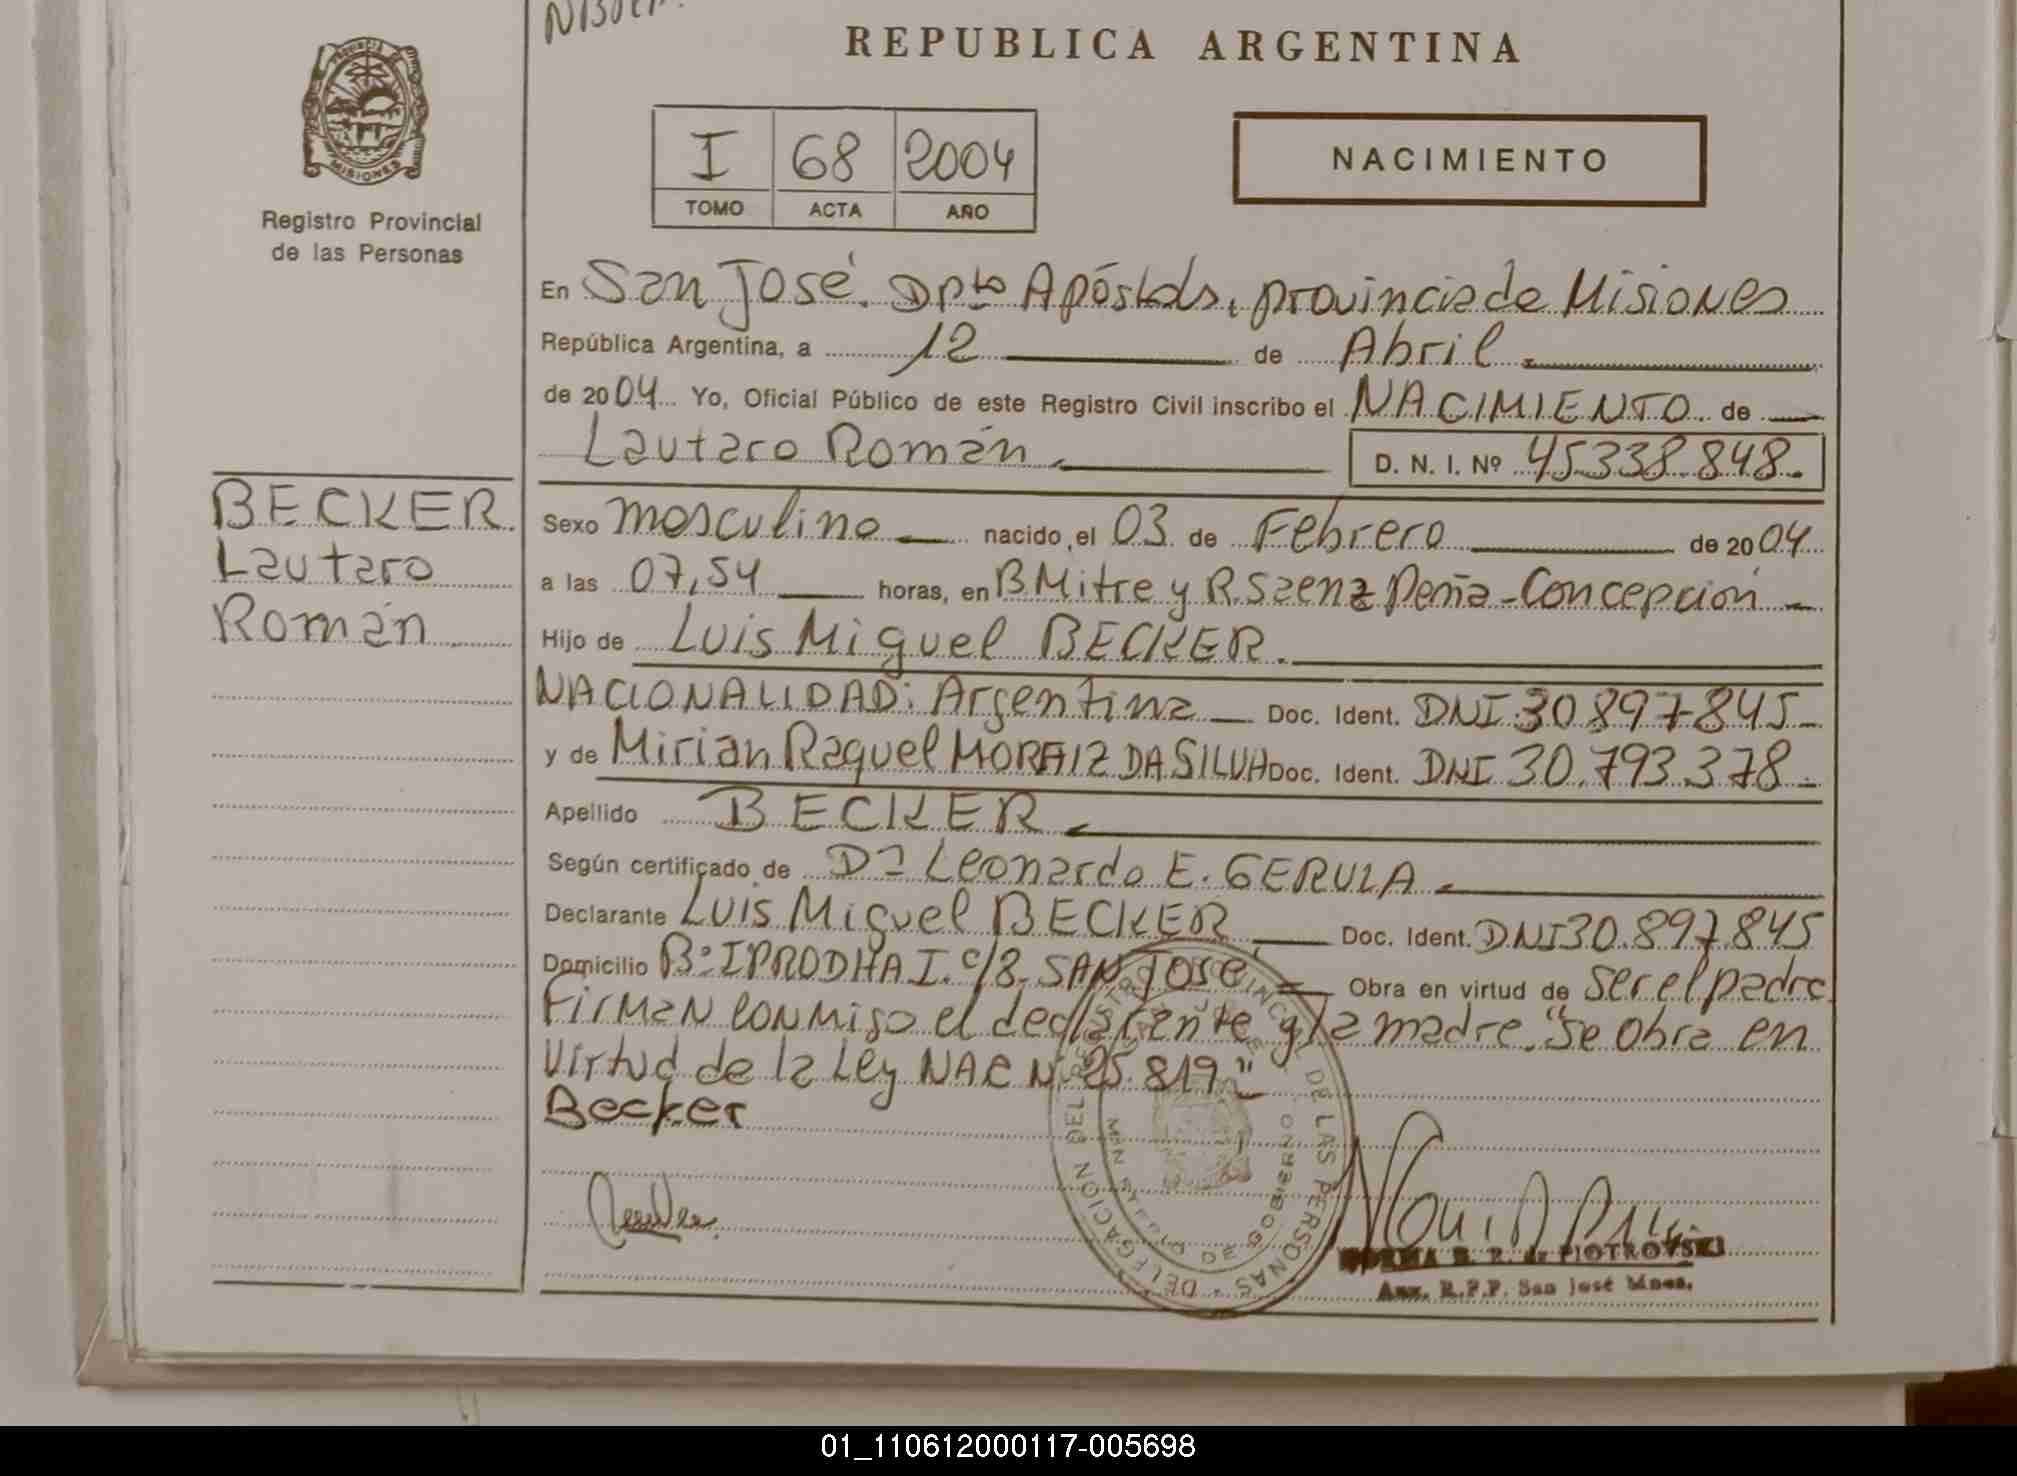 REPUBLICA ARGENTINA
PROVINCIA DE MISIONES
Registro Provincial
de las Personas
I 68 2004
TOMO ACTA AÑO
NACIMIENTO
En San José. Dpto Apóstoles, provincia de Misiones
República Argentina, a 12 de Abril.
de 2004 Yo, Oficial Público de este Registro Civil inscribo el NACIMIENTO de
Lautaro Román. D. N. I. Nº 45338848.
BECKER
Lautaro
Román
Sexo masculino nacido el 03 de Febrero de 2004
a las 07,54 horas, en B. Mitre y R. Saenz Peña - Concepción
Hijo de Luis Miguel BECKER.
NACIONALIDAD: Argentina Doc. Ident. DNI 30897845
y de Mirian Raquel MORAIZ DA SILVA Doc. Ident. DNI 30.793.378
Apellido BECKER
Según certificado de Dr Leonardo E. GERULA
Declarante Luis Miguel BECKER Doc. Ident. DNI 30.897.845
Domicilio Bº IPRODHA I. c/8. SAN JOSE Obra en virtud de ser el padre
Firman conmigo el declarante y la madre. "Se obra en
virtud de la Ley NAC Nº 25.819"
Becker
DELEGACION DEL REGISTRO PROVINCIAL DE LAS PERSONAS
NORMA B. R. de PIOTROVSKI
Aux. R.P.P. San José Mnes.
01_110612000117-005698